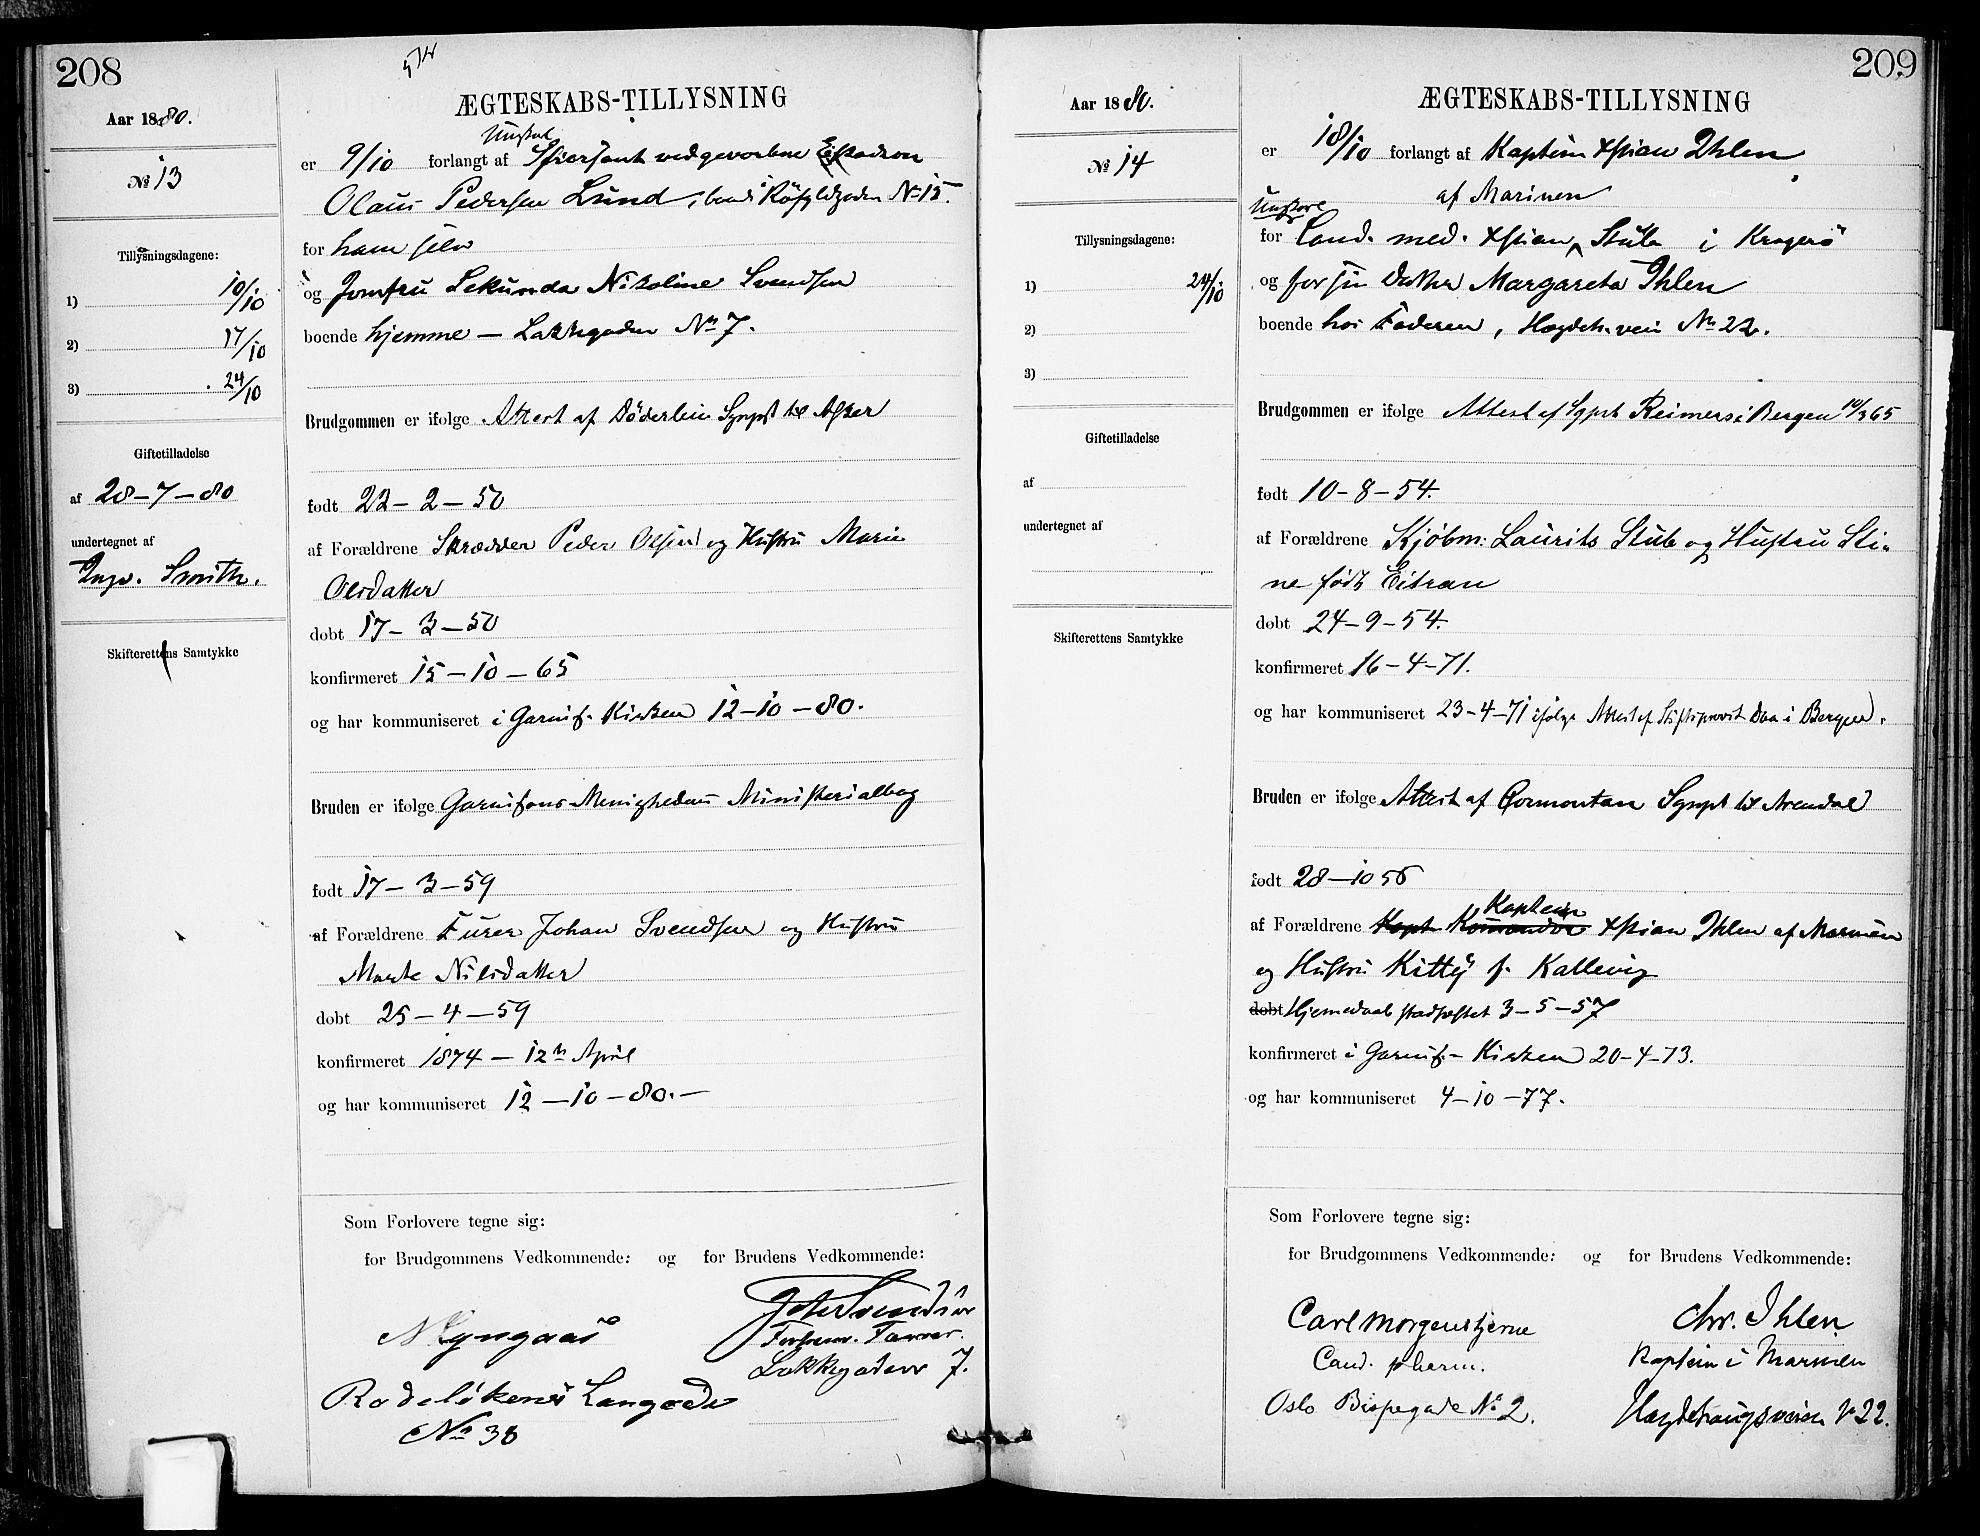 208
Aar 1880.
No 13
Tillysningsdagene:
1) 10/10
2) 17/10
3) 24/10
Giftetilladelse
af 28-7-80
undertegnet af
Ingv. Smith.
Skifterettens Samtykke
ÆGTESKABS-TILLYSNING
Ungkarl
er 9/10 forlangt af ved gevorbne Eskadron
Olaus Pedersen Lund, No 15.
for ham selv
og Jomfru Sekunda Nikoline Svendsen
boende hjemme — Lakkegaden No 7.
Brudgommen er ifølge Attest af Döderlein Sgnpst til Asker
født 22-2-50
af Forældrene Skrædder Peder Olsen og Hustru Marie
Olsdatter
døbt 17-3-50
konfirmeret 15-10-65
og har kommuniseret i Garnis. Kirken 12-10-80.
Bruden er ifølge Garnisons-Menighedens Ministerialbog
født 17-3-59
af Forældrene Furer Johan Svendsen og Hustru
Marte Nilsdatter
døbt 25-4-59
konfirmeret 1874 — 12te April
og har kommuniseret 12-10-80.—
Som Forlovere tegne sig:
for Brudgommens Vedkommende: og for Brudens Vedkommende:
Svendsen
Lakkegaden 7.
No 38
209
Aar 1880.
No 14
Tillysningsdagene:
1) 24/10
2)
3)
Giftetilladelse
af
undertegnet af
Skifterettens Samtykke
ÆGTESKABS-TILLYSNING
er 18/10 forlangt af Kaptein Xstian Ihlen
af Marinen
Ungkarl
for Cand. med. Xstian Stub i Kragerö
og for sin Datter Margareta Ihlen
boende hos Faderen, Hægdeh.vein No 22.
Brudgommen er ifølge Attest af Sgpst Reimers i Bergen 14/3 65
født 10-8-54.
af Forældrene Kjöbm: Laurits Stub og Hustru Sti-
ne født Eitran
døbt 24-9-54.
konfirmeret 16-4-71.
og har kommuniseret 23-4-71 ifølge Attest af Stiftsprovst Daa i Bergen.
Bruden er ifølge Attest af Cormontan Sgnpst til Arendal
født 28-10 56
Kaptein
af Forældrene Kapt Komandör Xstian Ihlen af Marinen
og Hustru Kitty f. Kallevig
døbt Hjemedaab stadfæstet 3-5-57
konfirmeret i Garnis.-Kirken 20-4-73.
og har kommuniseret 4-10-77.
Som Forlovere tegne sig:
for Brudgommens Vedkommende: og for Brudens Vedkommende:
Carl Morgenstjerne
Cand. pharm.
Oslo Bispegade No 2.
Chr. Ihlen
Kaptein i Marinen
Hægdehaugsveien No 22.